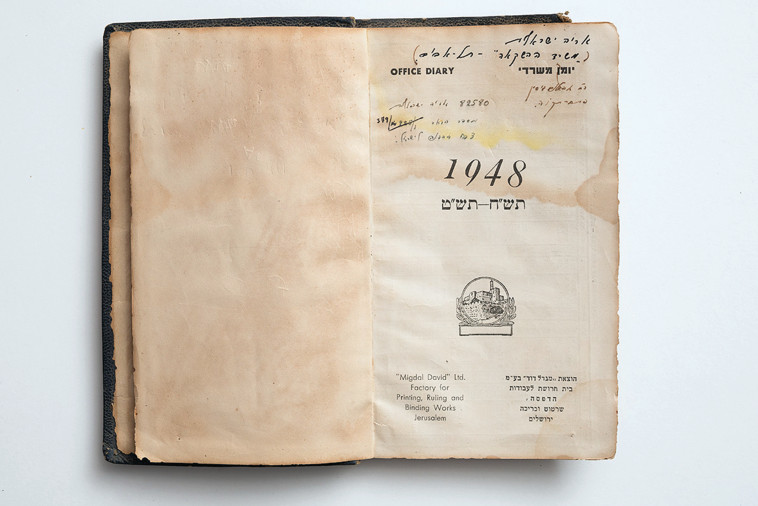 אריה ישראלית
(משרד ההשקאה" – תל-אביב)
OFFICE DIARY
יומן משרדי
82580
צבא הגנה לישראל
1948
תש"ח–תש"ט
"Migdal David" Ltd.
Factory for
Printing, Ruling and
Binding Works
Jerusalem
הוצאת „מגדל דוד" בע"מ
בית חרושת לעבודות
הדפסה,
שרטוט וכריכה
ירושלים